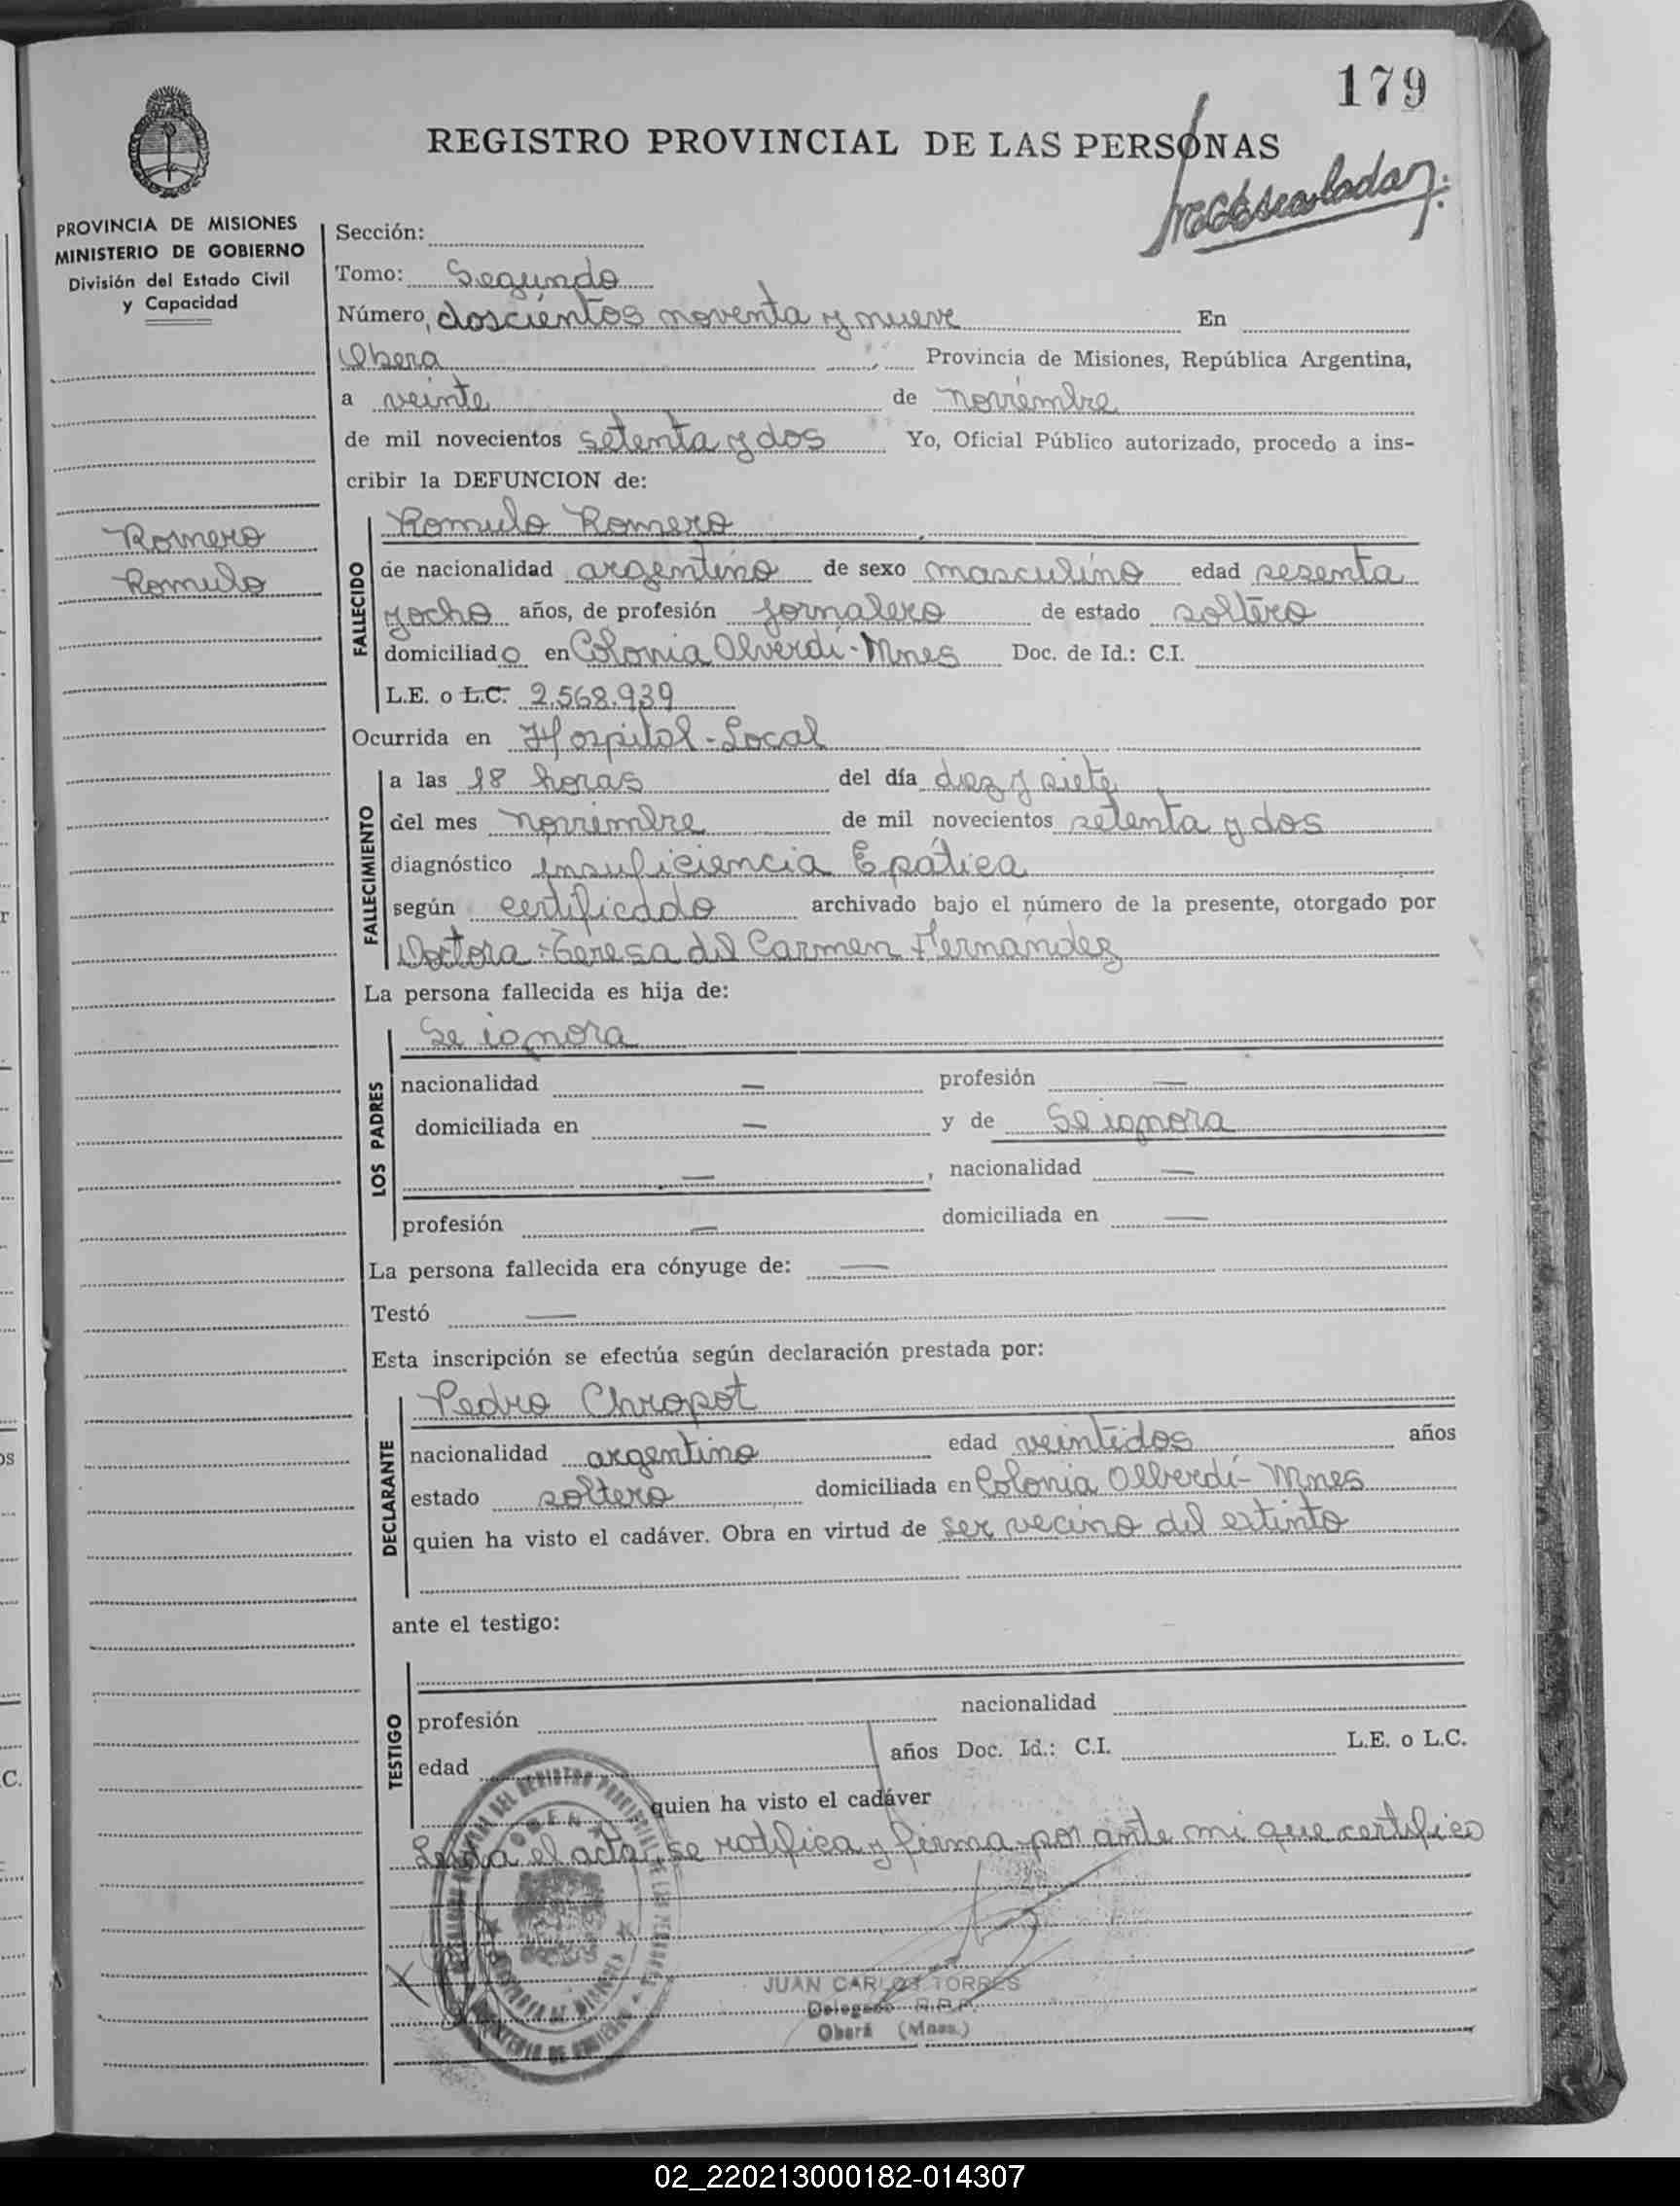 179
REGISTRO PROVINCIAL DE LAS PERSONAS
PROVINCIA DE MISIONES
MINISTERIO DE GOBIERNO
División del Estado Civil
y Capacidad
Romero
Romulo
Sección:
Tomo: Segundo
Número, doscientos noventa y nueve En
Obera Provincia de Misiones, República Argentina,
a veinte de noviembre
de mil novecientos setenta y dos Yo, Oficial Público autorizado, procedo a ins-
cribir la DEFUNCION de:
FALLECIDO
Romulo Romero
de nacionalidad argentino de sexo masculino edad sesenta
y ocho años, de profesión jornalero de estado soltero
domiciliado en Colonia Alverdi - Mnes Doc. de Id.: C.I.
L.E. o L.C. 2.568.939
Ocurrida en Hospital - Local
FALLECIMIENTO
a las 18 horas del día diez y siete
del mes noviembre de mil novecientos setenta y dos
diagnóstico insuficiencia Epática
según certificado archivado bajo el número de la presente, otorgado por
Doctora: Teresa del Carmen Hernández
La persona fallecida es hija de:
LOS PADRES
Se ignora
nacionalidad — profesión —
domiciliada en — y de Se ignora
—, nacionalidad —
profesión — domiciliada en —
La persona fallecida era cónyuge de: —
Testó —
Esta inscripción se efectúa según declaración prestada por:
DECLARANTE
Pedro Chropot
nacionalidad argentino edad veintidos años
estado soltero domiciliada en Colonia Alberdi - Mnes
quien ha visto el cadáver. Obra en virtud de ser vecino del extinto
ante el testigo:
TESTIGO
profesión nacionalidad
edad años Doc. Id.: C.I. L.E. o L.C.
quien ha visto el cadáver
Leida el acta, se ratifica y firma por ante mi que certifico
JUAN CARLOS TORRES
Delegado R.P.P.
Oberá (Mnes.)
02_220213000182-014307